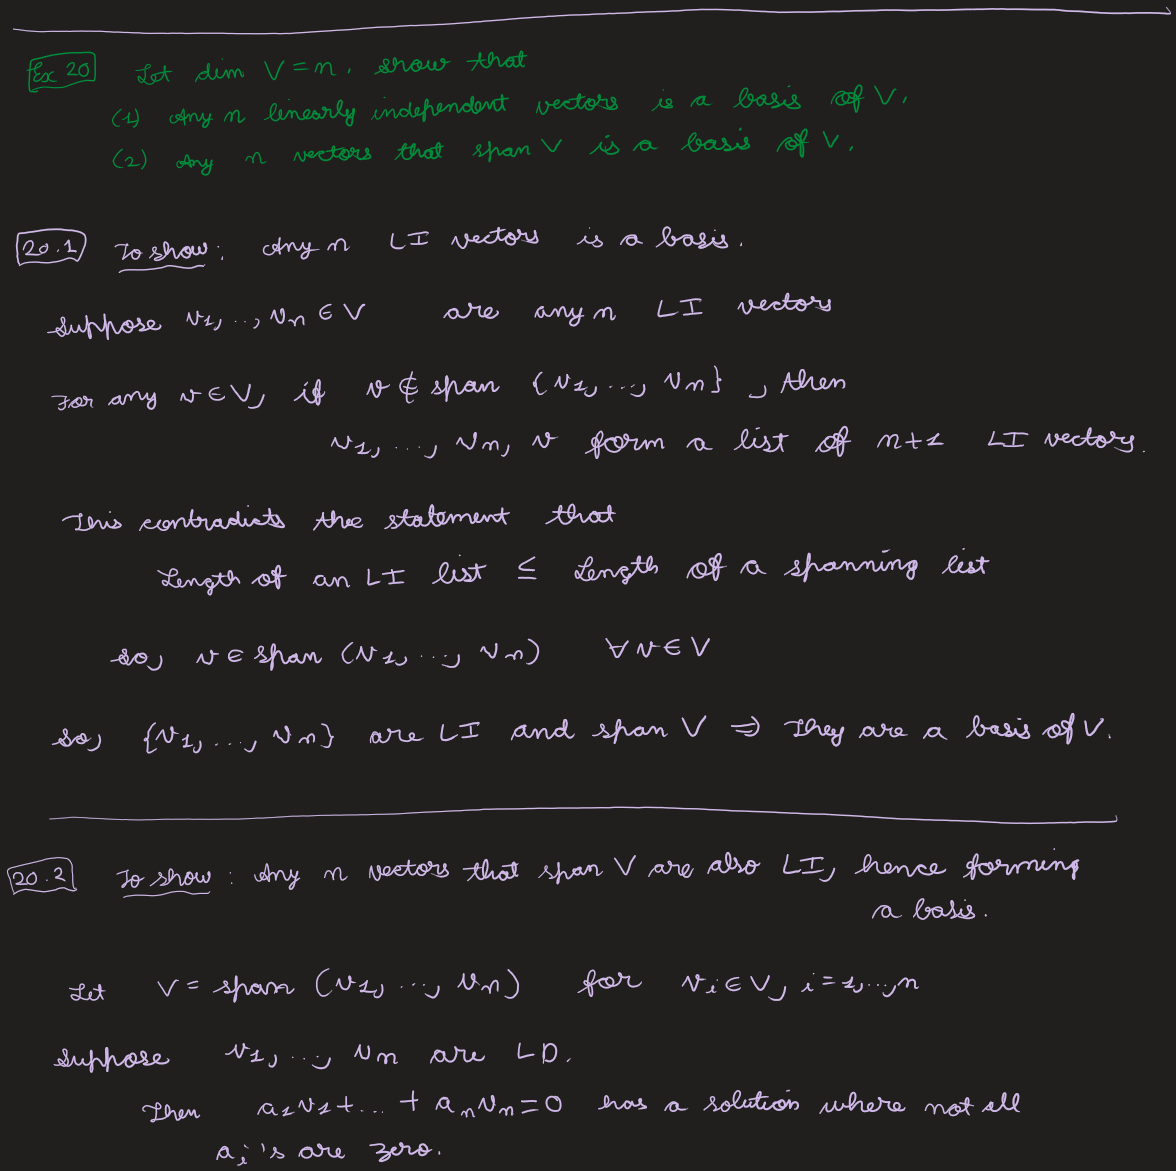 Ex 20 Let dim V = n. show that
(1) Any n linearly independent vectors is a basis of V.
(2) Any n vectors that span V is a basis of V.
20.1 To show: Any n LI vectors is a basis.
Suppose v₁, ..., vₙ ∈ V are any n LI vectors
For any v ∈ V, if v ∉ span {v₁, ..., vₙ}, then
v₁, ..., vₙ, v form a list of n+1 LI vectors.
This contradicts the statement that
Length of an LI list ≤ Length of a spanning list
So, v ∈ span (v₁, ..., vₙ) ∀ v ∈ V
So, {v₁, ..., vₙ} are LI and span V ⇒ They are a basis of V.
20.2 To show: Any n vectors that span V are also LI, hence forming
a basis.
Let V = span (v₁, ..., vₙ) for vᵢ ∈ V, i = 1, ..., n
Suppose v₁, ..., vₙ are LD.
Then a₁v₁ + ... + aₙvₙ = 0 has a solution where not all
aᵢ's are zero.